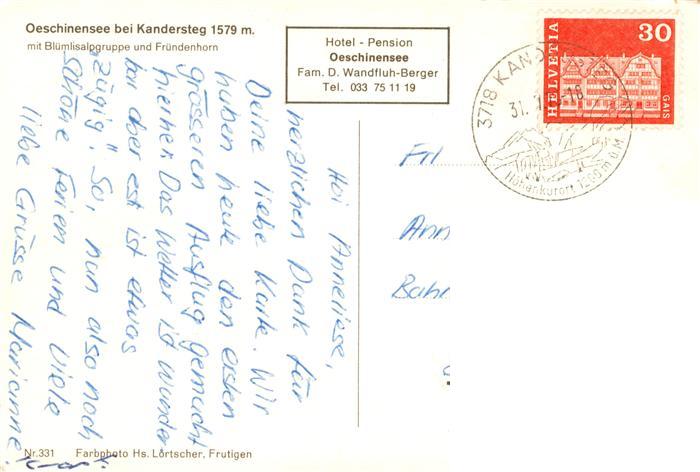 Oeschinensee bei Kandersteg 1579 m.
mit Blümlisalpgruppe und Fründenhorn
Hotel - Pension
Oeschinensee
Fam. D. Wandfluh-Berger
Tel. 033 75 11 19
HELVETIA
30
GAIS
3718 KAND
31.
Höhenkurort 1200 m ü.M.
Hoi Anneliese,
herzlichen Dank für
Deine liebe Karte. Wir
haben heute den ersten
grösseren Ausflug gemacht
hierher. Das Wetter ist wunder
bar aber est ist etwas
"zügig". So, nun also noch
schöne Ferien und viele
liebe Grüsse Marianne
Frl
Ann
Bahn
Nr.331 Farbphoto Hs. Lörtscher, Frutigen